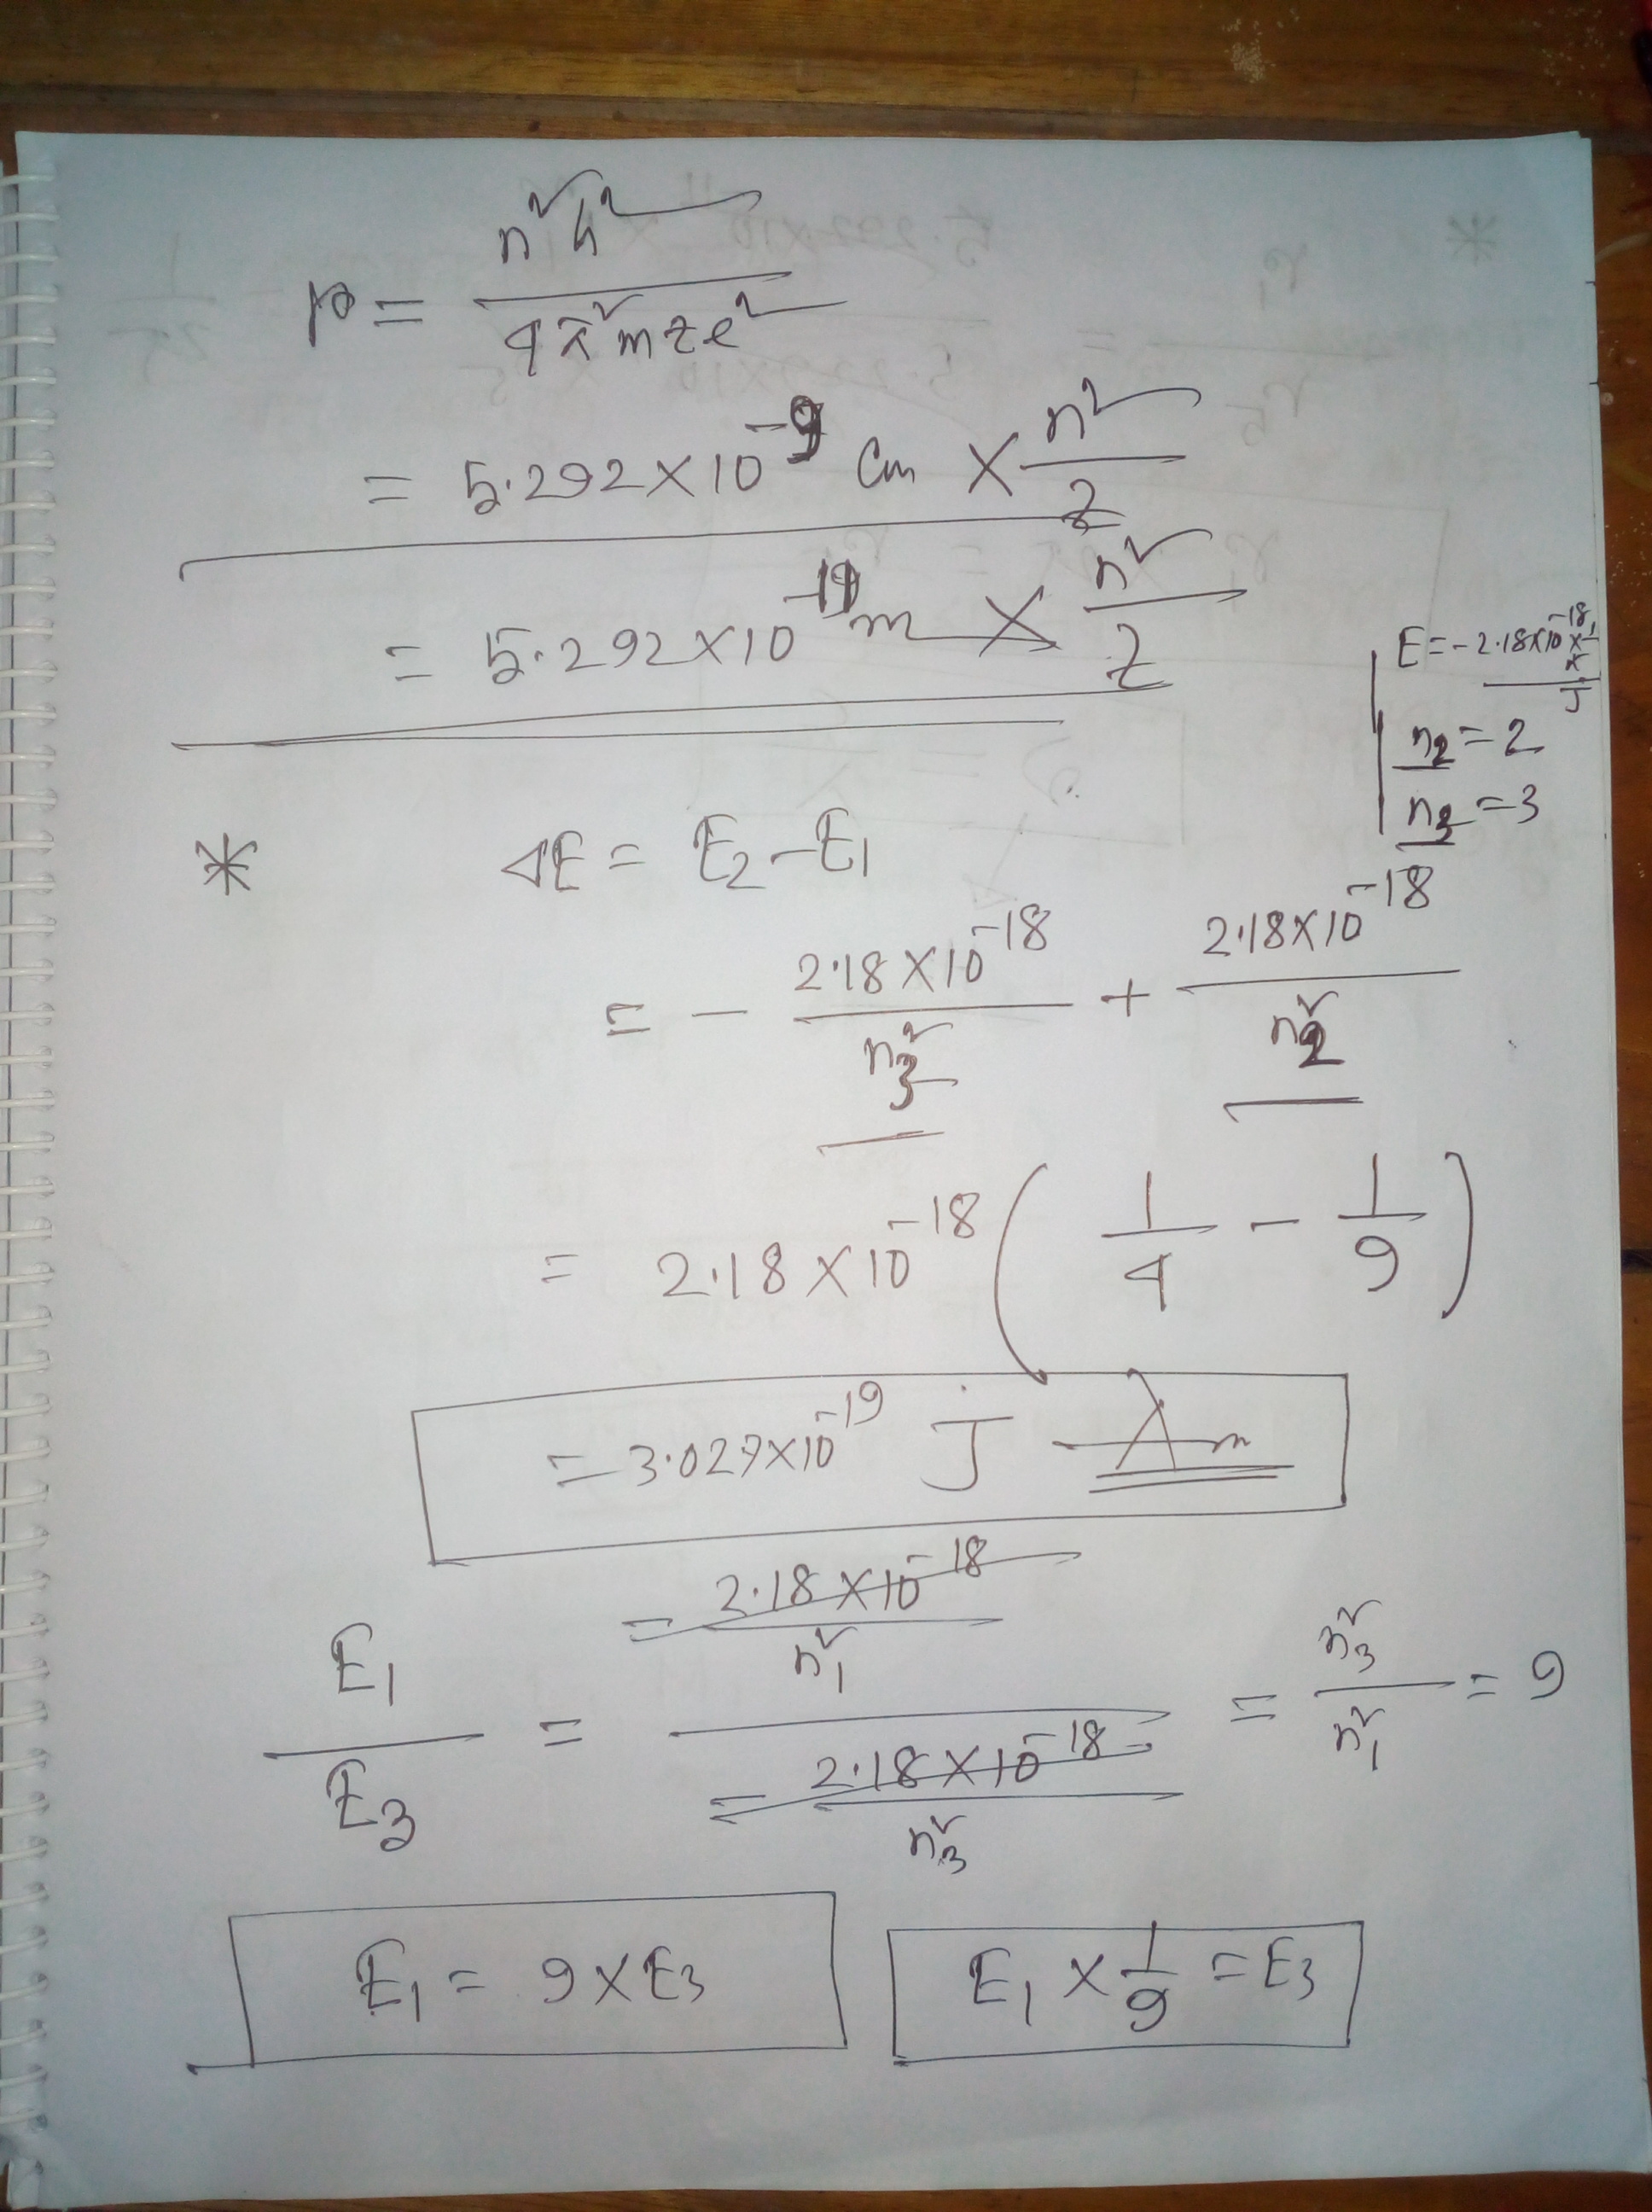 r = n²h² / 4π²mze²
= 5.292×10⁻⁹ cm × n²/z
= 5.292×10⁻¹¹ m × n²/z
E = -2.18×10⁻¹⁸ ×
J
n₂ = 2
n₃ = 3
* ΔE = E₂ - E₁
= - 2.18×10⁻¹⁸ / n₃² + 2.18×10⁻¹⁸ / n₂²
= 2.18×10⁻¹⁸ ( 1/4 - 1/9 )
= 3.027×10⁻¹⁹ J
E₁ / E₃ = (- 2.18×10⁻¹⁸ / n₁²) / (- 2.18×10⁻¹⁸ / n₃²) = n₃² / n₁² = 9
E₁ = 9×E₃
E₁ × 1/9 = E₃